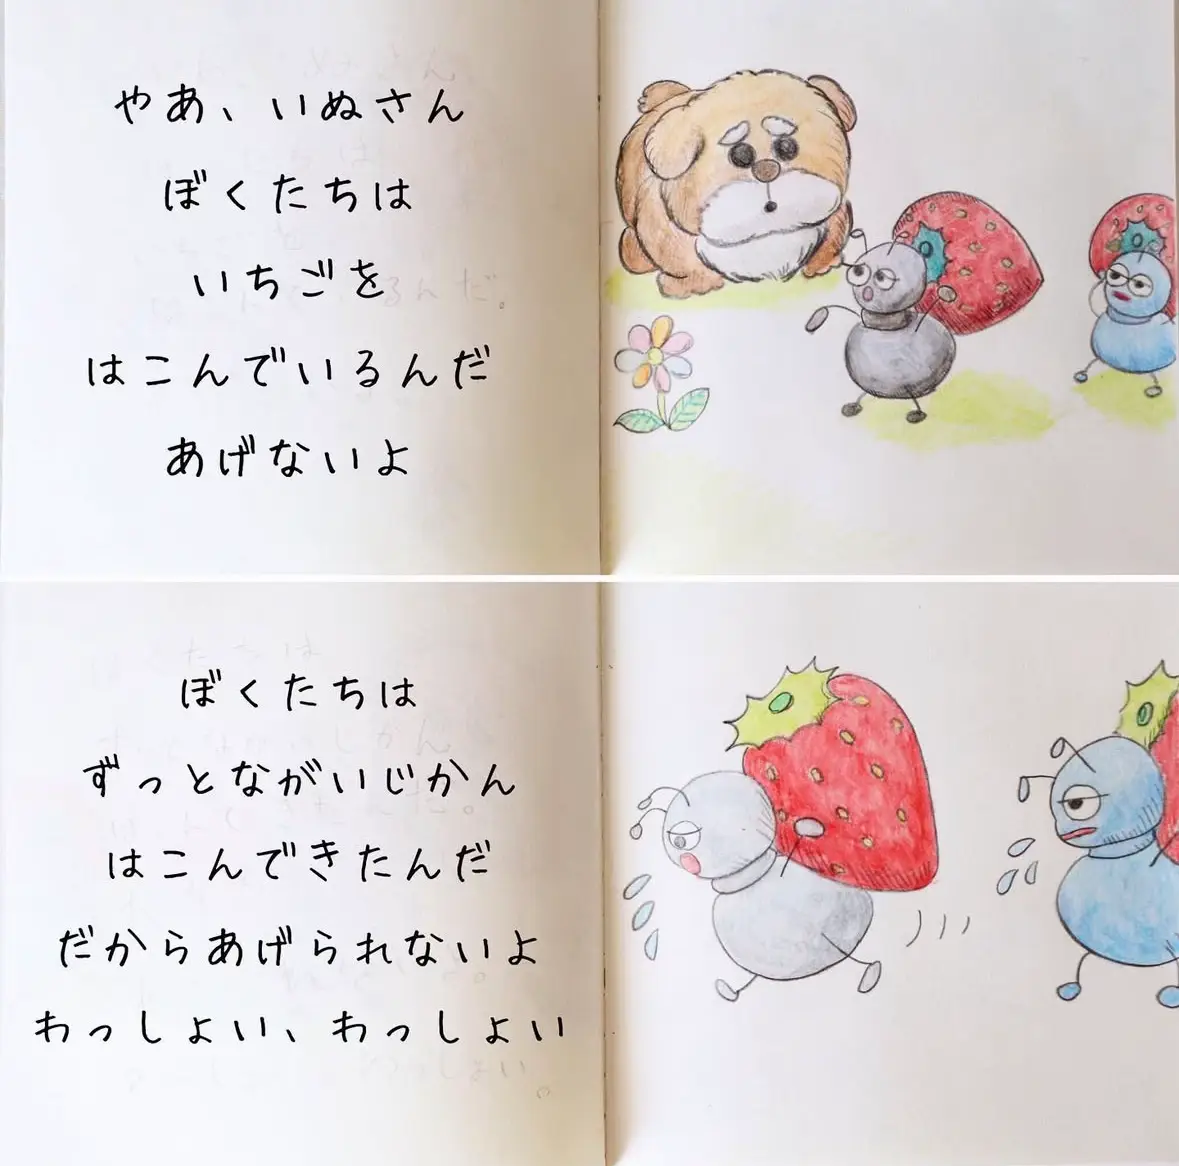 やあ、いぬさん
ぼくたちは
いちごを
はこんでいるんだ
あげないよ
ぼくたちは
ずっとながいじかん
はこんできたんだ
だからあげられないよ
わっしょい、わっしょい